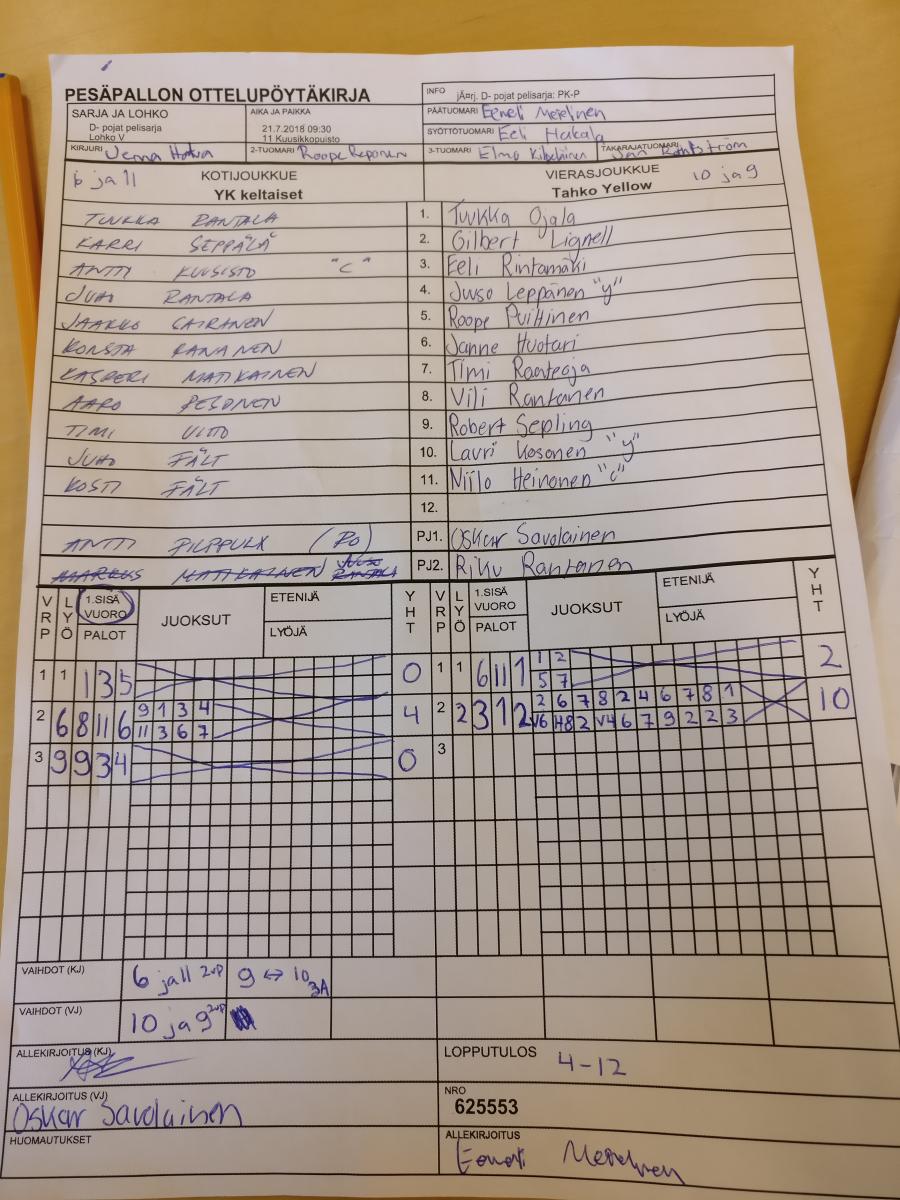 PESÄPALLON OTTELUPÖYTÄKIRJA
INFO jÄ¤rj. D- pojat pelisarja: PK-P
SARJA JA LOHKO
D- pojat pelisarja
Lohko V
AIKA JA PAIKKA
21.7.2018 09:30
11 Kuusikkopuisto
PÄÄTUOMARI Eeneli Merelinen
SYÖTTÖTUOMARI Eeli Hakala
KIRJURI Jenna 2-TUOMARI Roope Reponen 3-TUOMARI Elmo TAKARAJATUOMARI
6 ja 11 KOTIJOUKKUE VIERASJOUKKUE 10 ja 9
YK keltaiset Tahko Yellow
TUUKKA RANTALA 1. Tuukka Ojala
KARRI SEPPÄLÄ 2. Gilbert Lignell
ANTTI KUUSISTO "C" 3. Eeli Rintamäki
JUHO RANTALA 4. Juuso Leppänen "y"
JAAKKO SAIRANEN 5. Roope Puittinen
KONSTA RANANEN 6. Janne Huotari
KASPERI MATIKAINEN 7. Timi Raateoja
AARO PESONEN 8. Vili Rantanen
TIMI 9. Robert Sepling
JUHO FÄLT 10. Lauri Kosonen "y"
KOSTI FÄLT 11. Niilo Heinonen "c"
12.
ANTTI (PO) PJ1. Oskar Savolainen
MARKUS MATIKAINEN JUUSO RANTALA PJ2. Riku Rantanen
VRP LYÖ 1.SISÄ VUORO PALOT JUOKSUT ETENIJÄ LYÖJÄ YHT VRP LYÖ 1.SISÄ VUORO PALOT JUOKSUT ETENIJÄ LYÖJÄ YHT
1 1 1 3 5 0 1 1 6 11 1 1 2 2
5 7
2 6 8 11 6 9 1 3 4 4 2 2 3 1 2 2 6 7 8 2 4 6 7 8 1 10
11 3 6 7 V6 H8 2 V4 6 7 9 2 2 3
3 9 9 3 4 0 3
VAIHDOT (KJ) 6 ja 11 2vp 9 ↔ 10 3A
VAIHDOT (VJ) 10 ja 9 2vp
ALLEKIRJOITUS (KJ) LOPPUTULOS 4-12
ALLEKIRJOITUS (VJ) Oskar Savolainen
NRO 625553
HUOMAUTUKSET ALLEKIRJOITUS